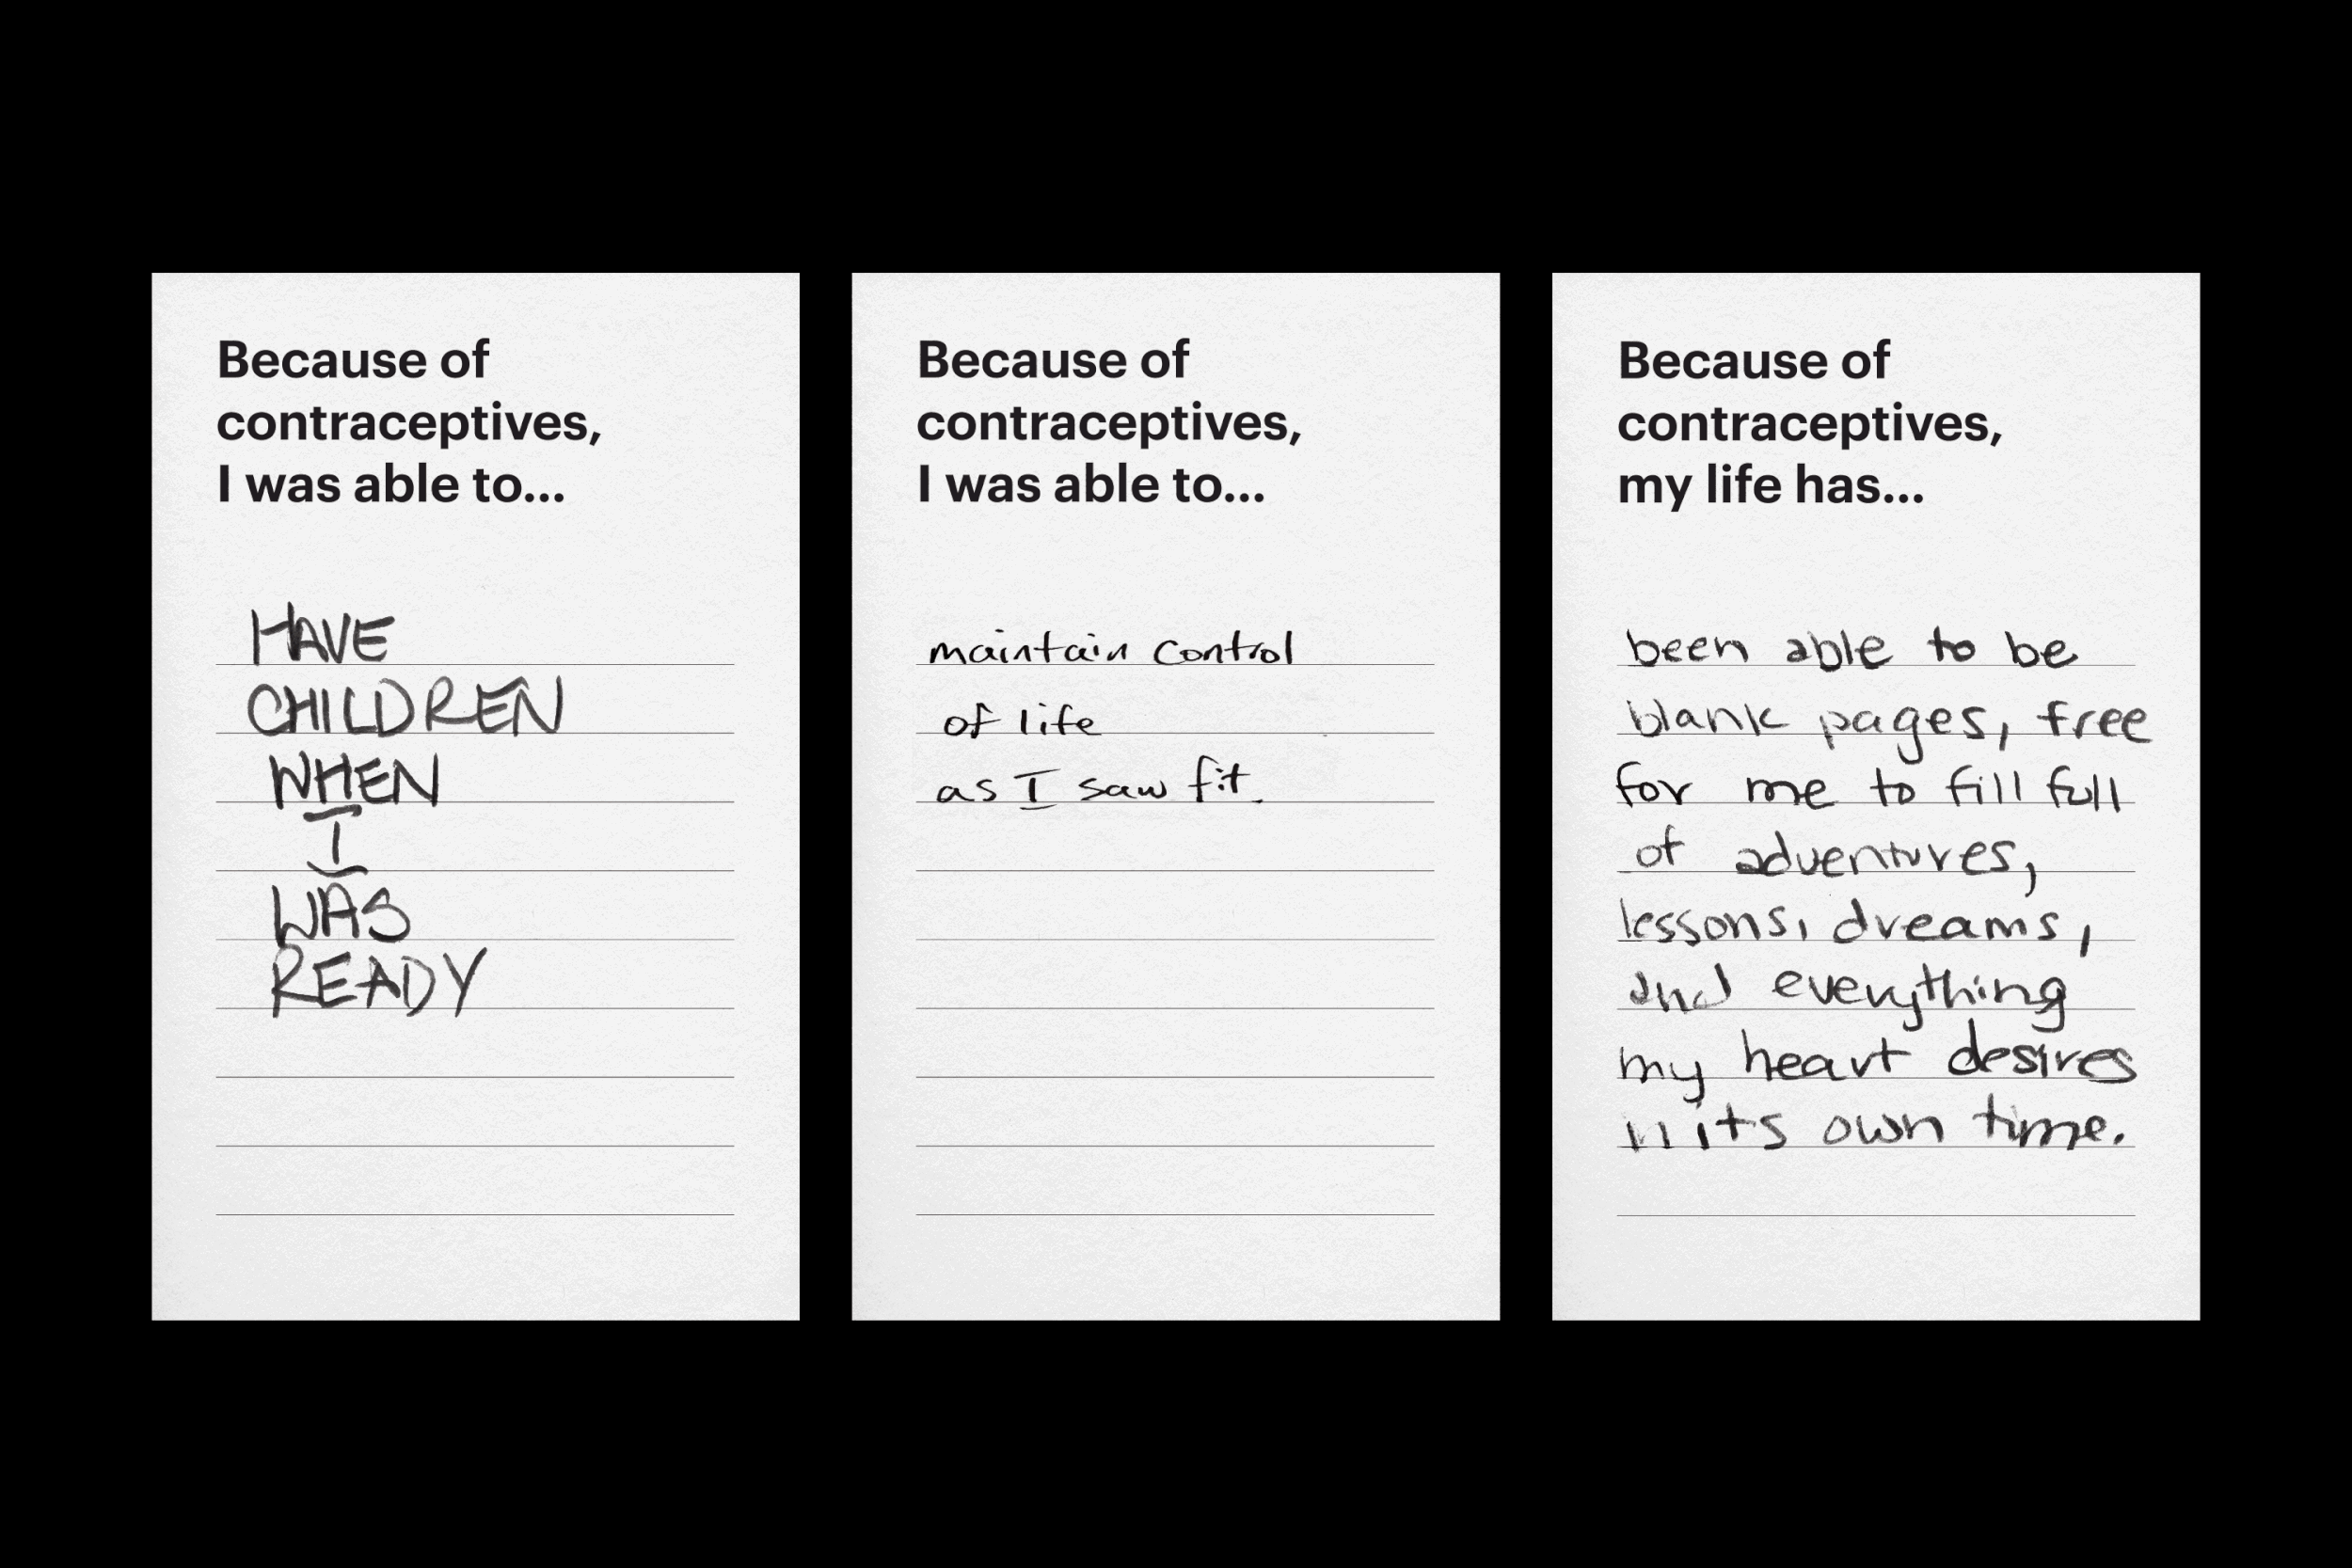 Because of
contraceptives,
I was able to...
HAVE
CHILDREN
WHEN
I
WAS
READY
Because of
contraceptives,
I was able to...
maintain control
of life
as I saw fit.
Because of
contraceptives,
my life has...
been able to be
blank pages, free
for me to fill full
of adventures,
lessons, dreams,
and everything
my heart desires
in its own time.